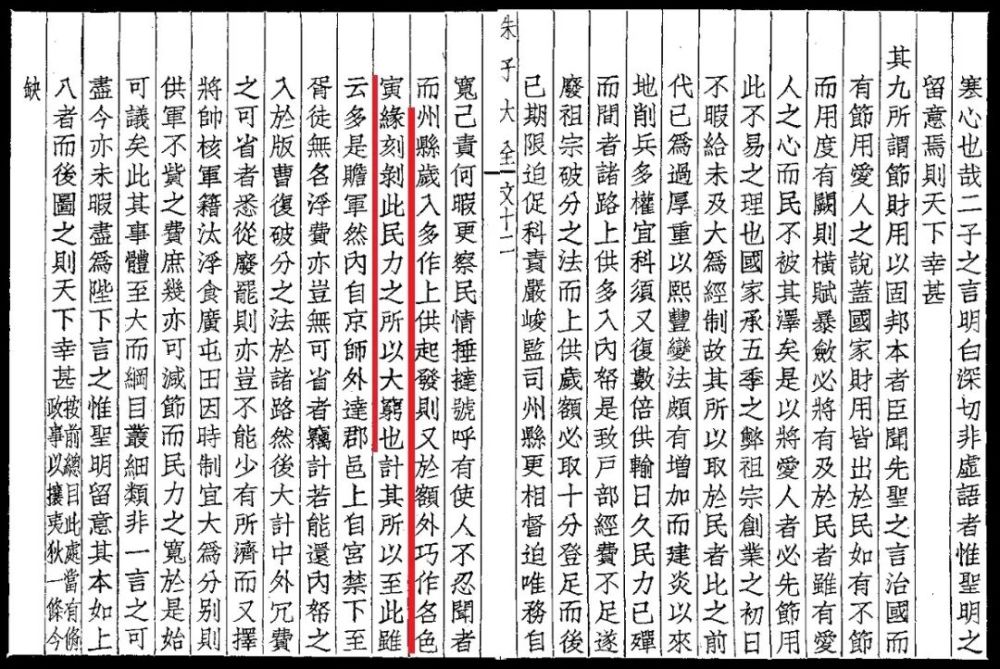 寒心也哉二子之言明白深切非虛語者惟聖明之
留意焉則天下幸甚
其九所謂節財用以固邦本者臣聞先聖之言治國而
有節用愛人之說蓋國家財用皆出於民如有不節
而用度有闕則橫賦暴斂必將有及於民者雖有愛
人之心而民不被其澤矣是以將愛人者必先節用
此不易之理也國家承五季之弊祖宗創業之初日
不暇給未及大為經制故其所以取於民者比之前
代已為過厚重以熙豐變法頗有增加而建炎以來
地削兵多權宜科須又復數倍供輸日久民力已殫
而間者諸路上供多入內帑是致戶部經費不足遂
廢祖宗破分之法而上供歲額必取十分登足而後
已期限迫促科責嚴峻監司州縣更相督迫唯務自
朱子大全 文十二
寬己責何暇更察民情捶撻號呼有使人不忍聞者
而州縣歲入多作上供起發則又於額外巧作各色
寅緣刻剝此民力之所以大窮也計其所以至此雖
云多是贍軍然內自京師外達郡邑上自宮禁下至
胥徒無名浮費亦豈無可省者竊計若能還內帑之
入於版曹復破分之法於諸路然後大計中外冗費
之可省者悉從廢罷則亦豈不能少有所濟而又擇
將帥核軍籍汰浮食廣屯田因時制宜大為分別則
供軍不貲之費庶幾亦可減節而民力之寬於是始
可議矣此其事體至大而綱目叢細類非一言之可
盡今亦未暇盡為陛下言之惟聖明留意其本如上
八者而後圖之則天下幸甚按前總目此處當有修
政事以攘夷狄一條今
缺